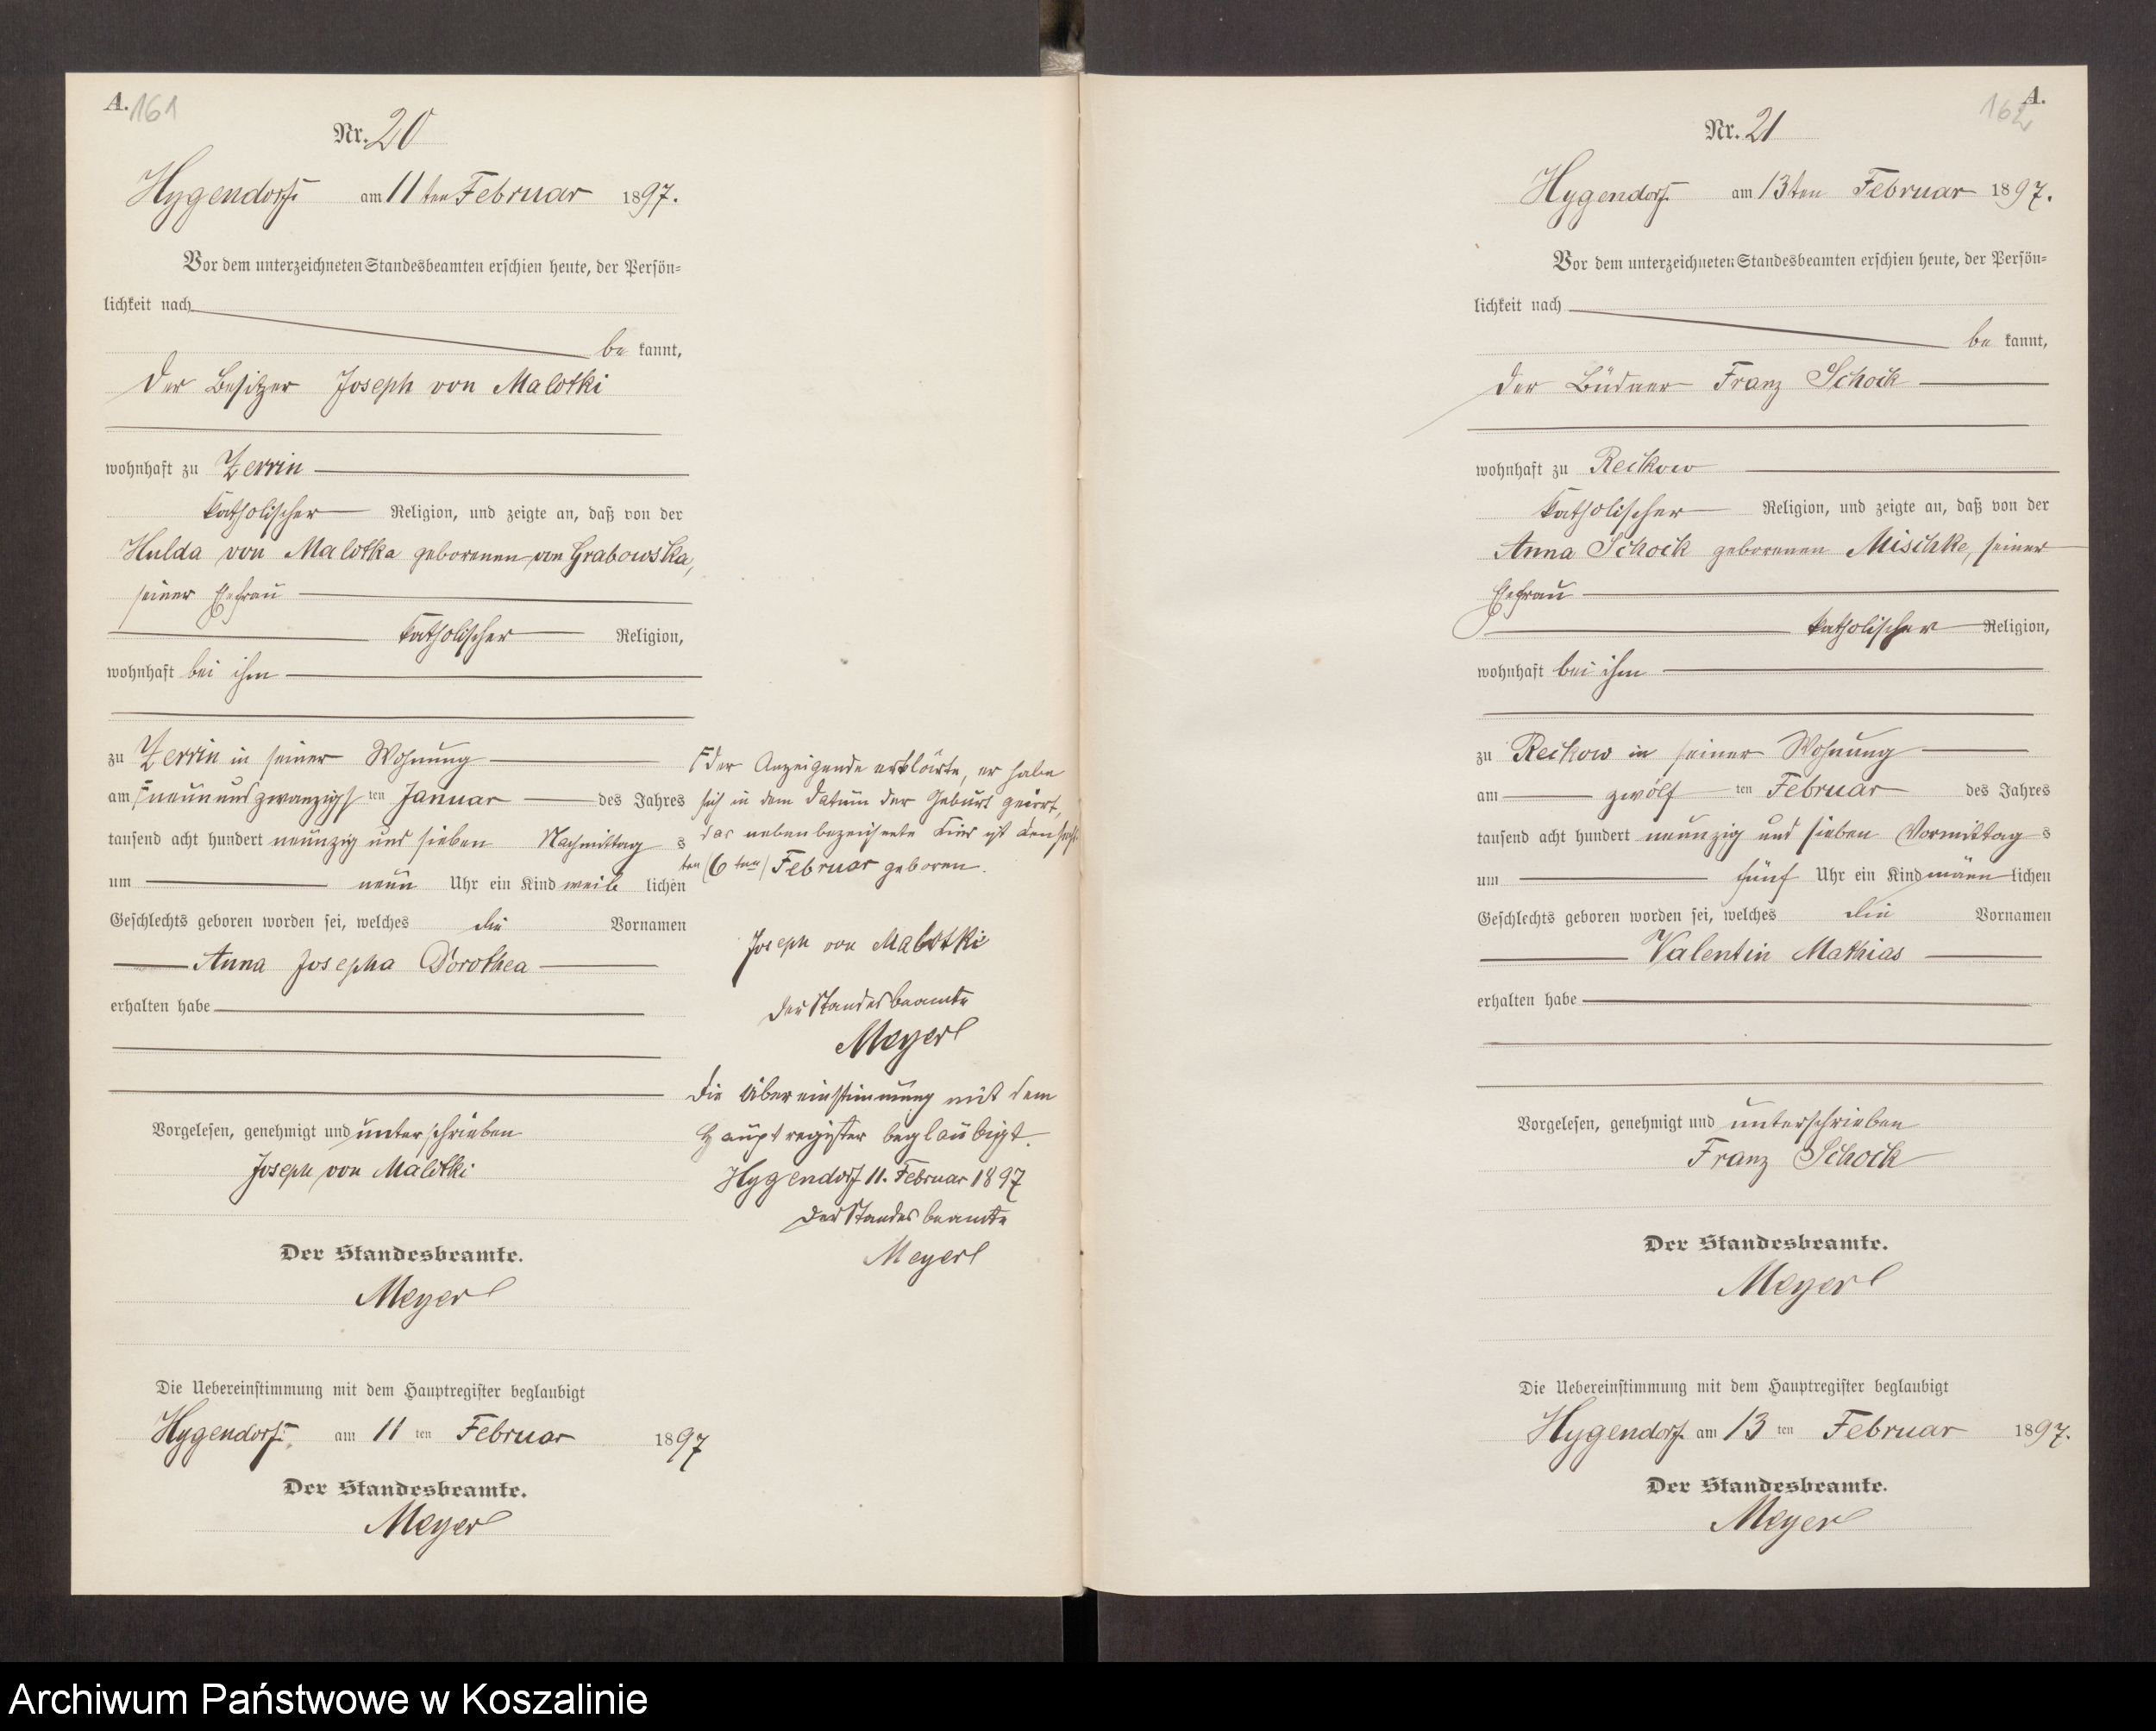 A. 161
Nr. 20
Hygendorf am 11ten Februar 1897.
Vor dem unterzeichneten Standesbeamten erschien heute, der Persön=
lichkeit nach
be kannt,
der Besitzer Joseph von Malotki
wohnhaft zu Zerrin
katholischer Religion, und zeigte an, daß von der
Hulda von Malotka geborenen von Grabowska,
seiner Ehefrau
katholischer Religion,
wohnhaft bei ihm
zu Zerrin in seiner Wohnung
am neunundzwanzigsten Januar des Jahres
tausend acht hundert neunzig und sieben Nachmittag s
um neun Uhr ein Kind weib lichen
Geschlechts geboren worden sei, welches die Vornamen
Anna Josepha Dorothea
erhalten habe
Vorgelesen, genehmigt und unterschrieben
Joseph von Malotki
Der Standesbeamte.
Meyer
Die Uebereinstimmung mit dem Hauptregister beglaubigt
Hygendorf am 11 ten Februar 1897
Der Standesbeamte.
Meyer
der Anzeigende erklärte, er habe
sich in dem Datum der Geburt geirrt,
das nebenbezeichnete Kind ist den sechs
ten (6ten) Februar geboren.
Joseph von Malotki
Der Standesbeamte
Meyer
Die Übereinstimmung mit dem
Hauptregister beglaubigt.
Hygendorf 11. Februar 1897
Der Standesbeamte
Meyer
162 A.
Nr. 21
Hygendorf am 13ten Februar 1897.
Vor dem unterzeichneten Standesbeamten erschien heute, der Persön=
lichkeit nach
be kannt,
der Büdner Franz Schock
wohnhaft zu Reckow
katholischer Religion, und zeigte an, daß von der
Anna Schock geborenen Mischke, seiner
Ehefrau
katholischer Religion,
wohnhaft bei ihm
zu Reckow in seiner Wohnung
am zwölf ten Februar des Jahres
tausend acht hundert neunzig und sieben Vormittag s
um fünf Uhr ein Kind männ lichen
Geschlechts geboren worden sei, welches die Vornamen
Valentin Mathias
erhalten habe
Vorgelesen, genehmigt und unterschrieben
Franz Schock
Der Standesbeamte.
Meyer
Die Uebereinstimmung mit dem Hauptregister beglaubigt
Hygendorf am 13 ten Februar 1897.
Der Standesbeamte.
Meyer
Archiwum Państwowe w Koszalinie